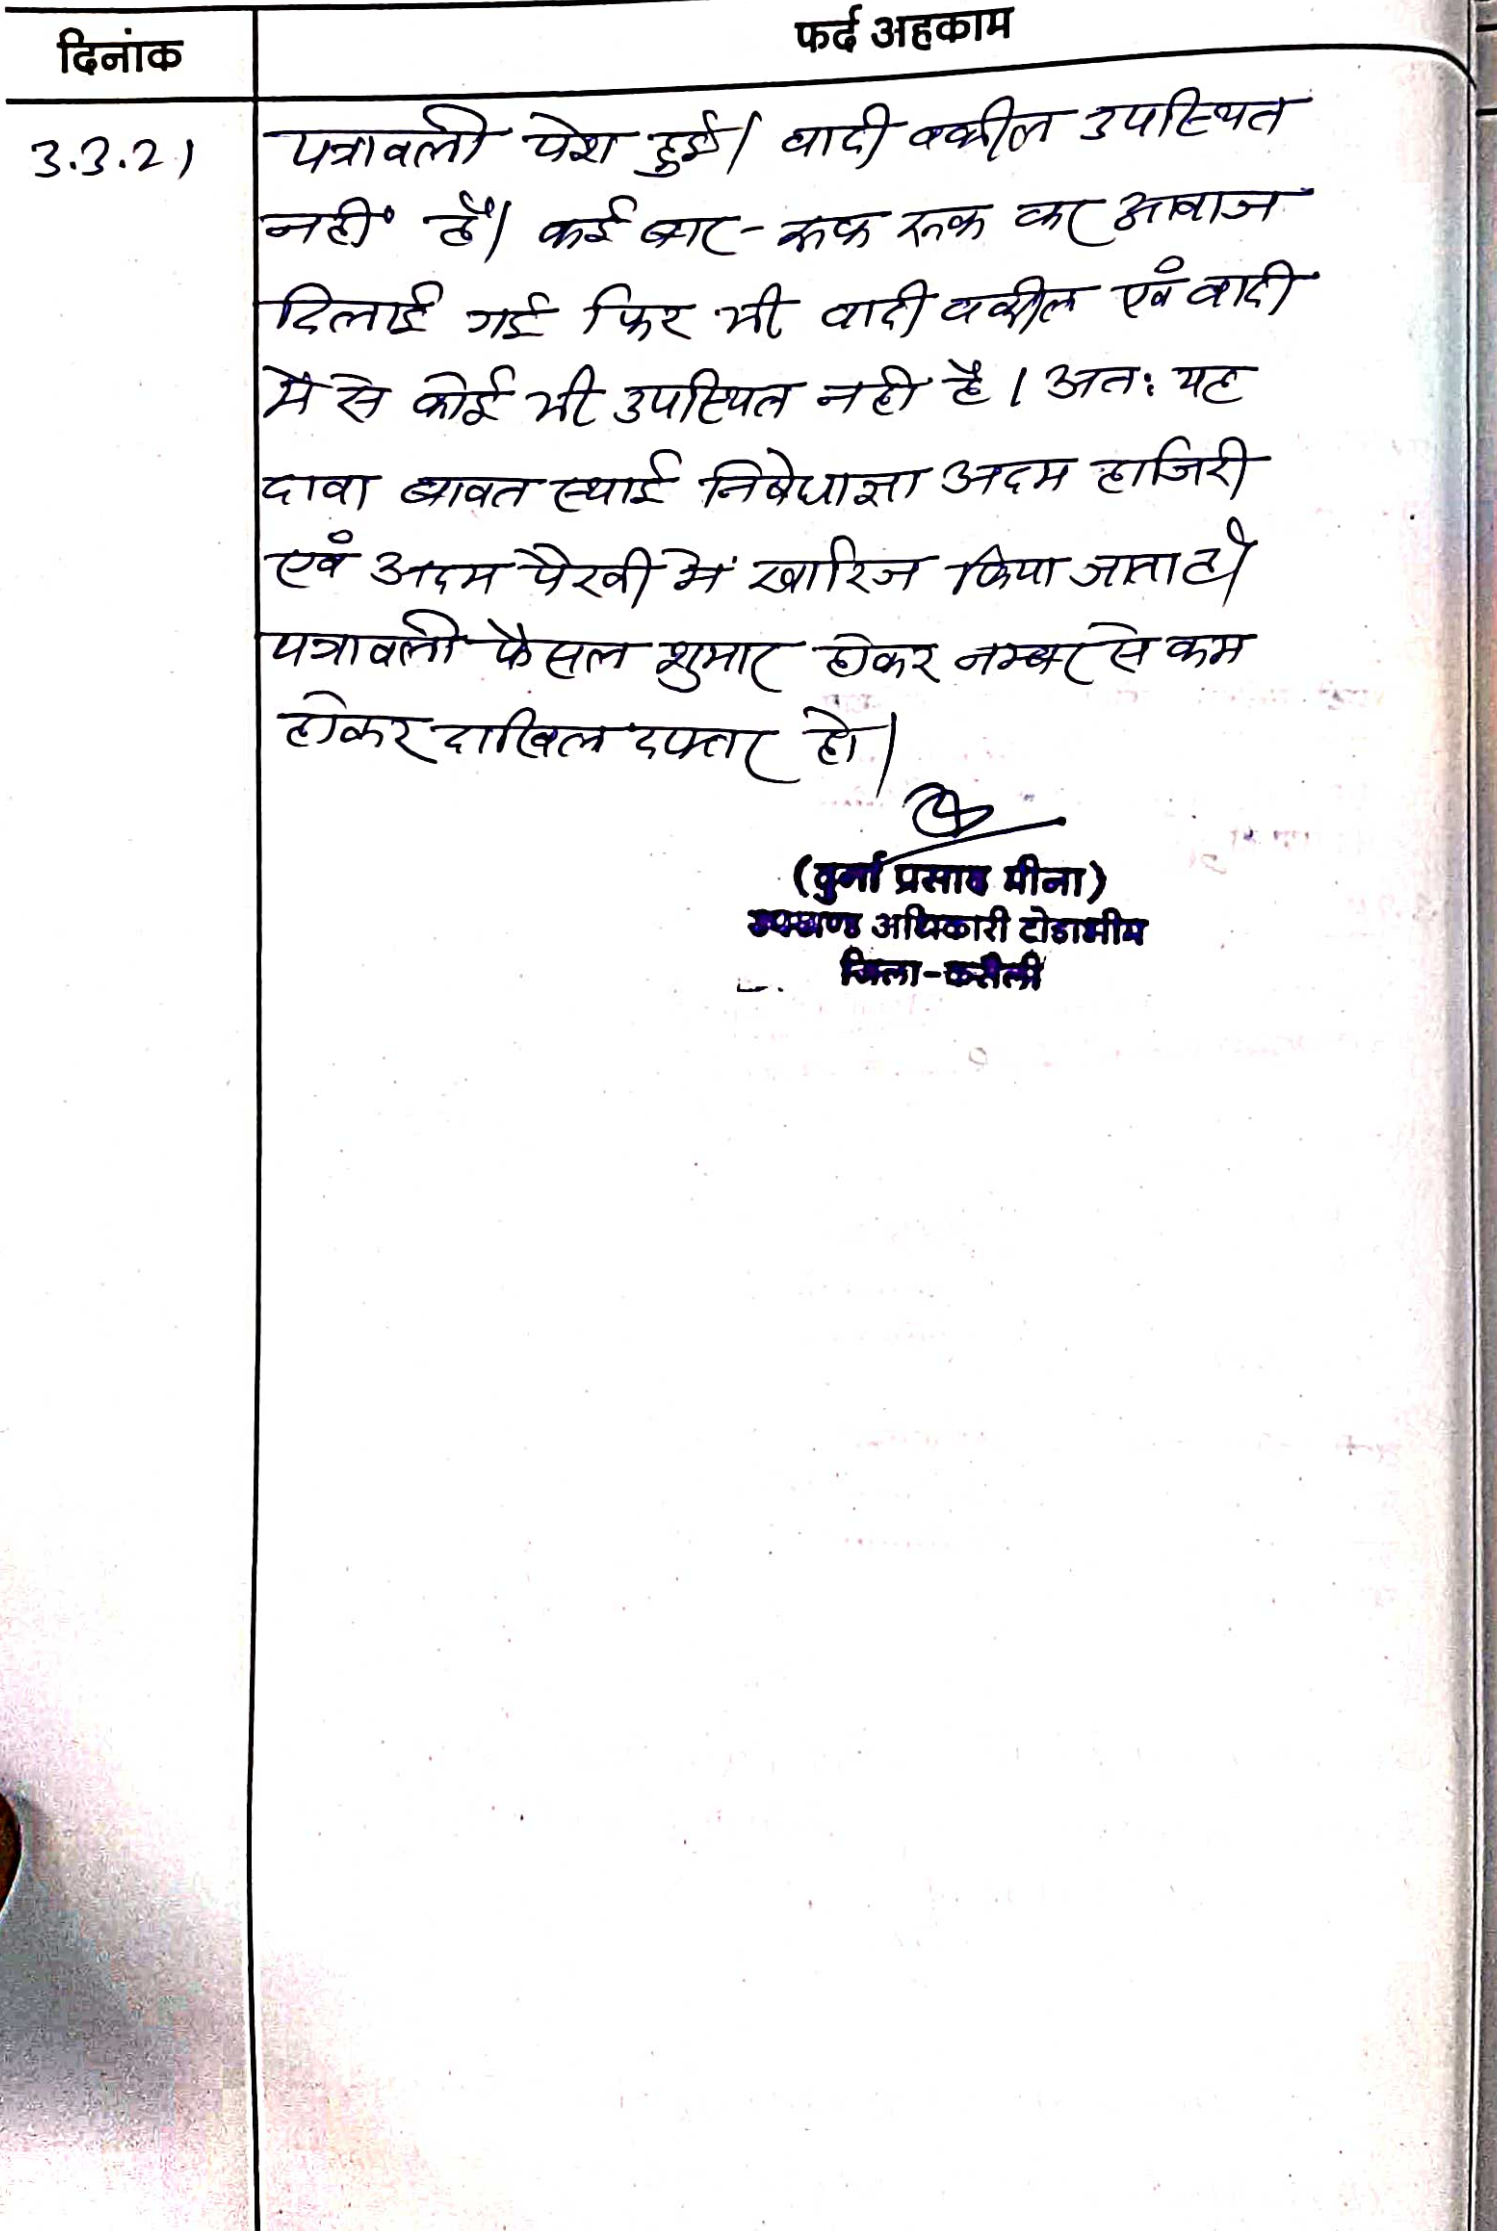 दिनांक
फर्द अहकाम
3.3.21
पत्रावली पेश हुई। वादी वकील उपस्थित
नहीं है। कई बार- रूक रूक कर आवाज
दिलाई गई फिर भी वादी वकील एवं वादी
मे से कोई भी उपस्थित नही है। अतः यह
दावा बावत स्थाई निषेधाज्ञा अदम हाजिरी
एवं अदम पैरवी में खारिज किया जाता है।
पत्रावली फैसल शुमार होकर नम्बर से कम
होकर दाखिल दफ्तर हो।
(दुर्गा प्रसाद मीना)
उपखण्ड अधिकारी टोडाभीम
जिला-करौली